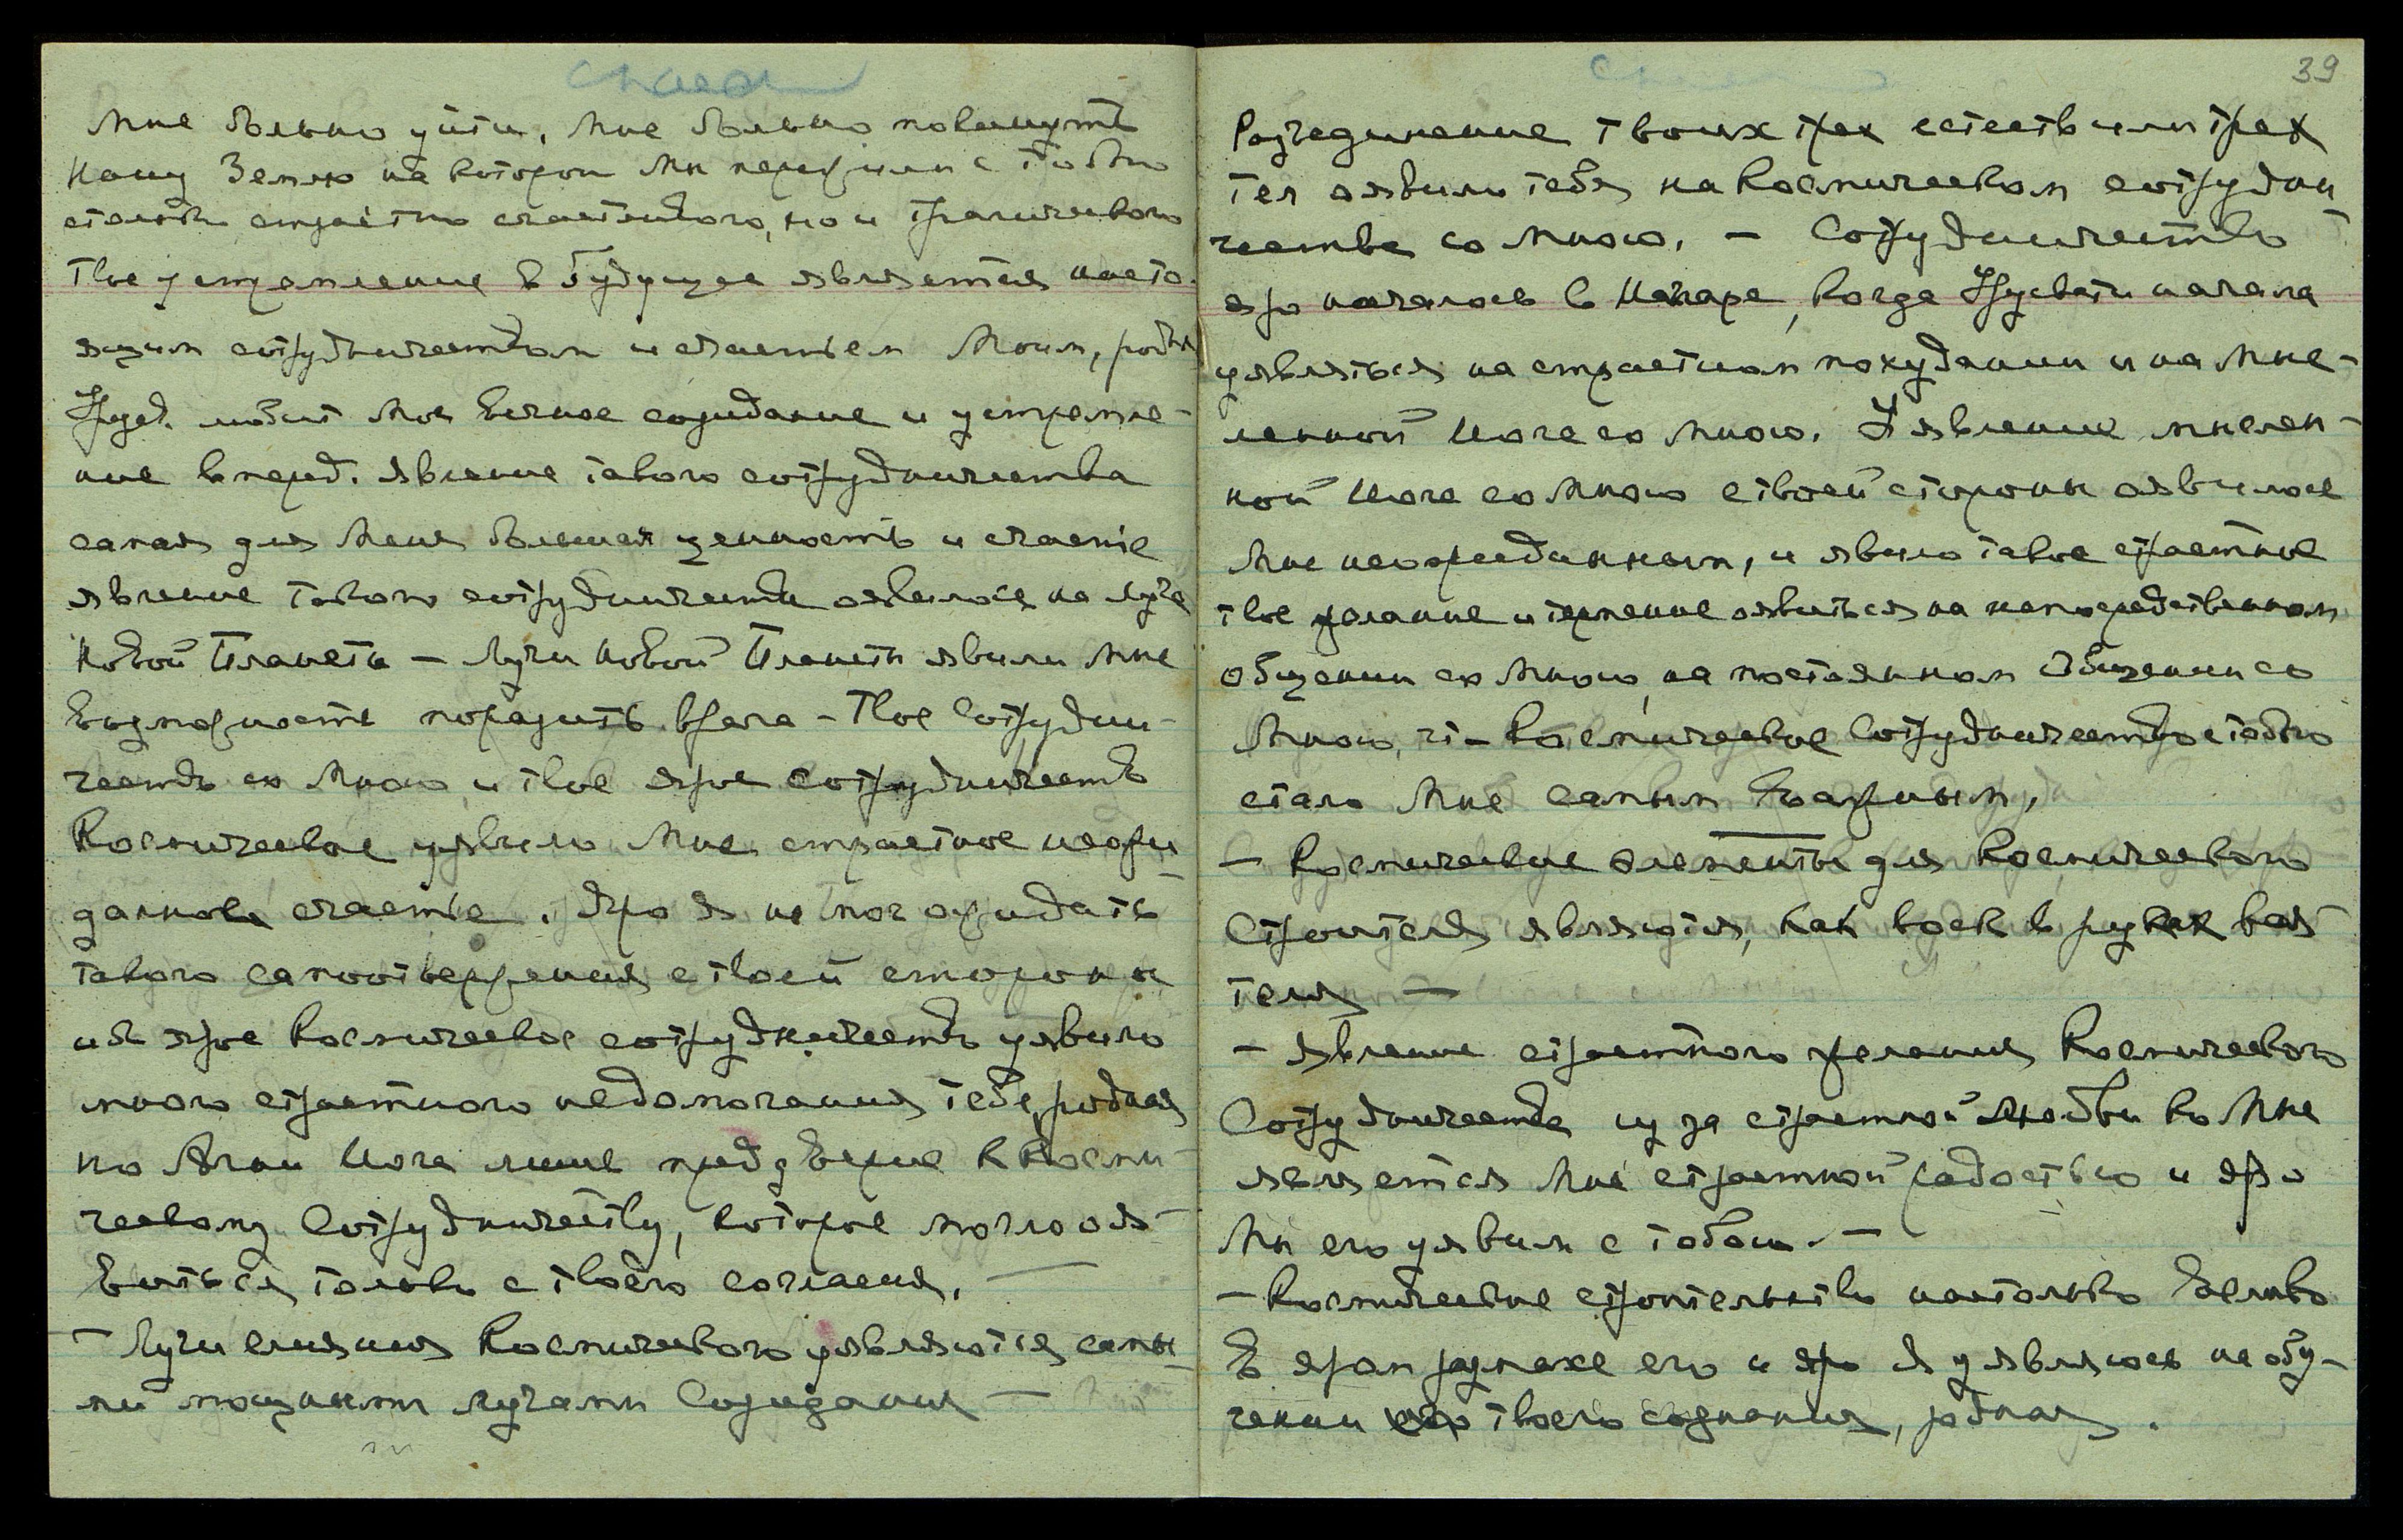 Мне больно уйти, мне больно покинуть
Нашу Землю на которой Мы пережили с тобою
столько страстно счастливого, но и трагического
Твое устремление в Будущее является насто-
ящим сотрудничеством и счастьем Моим, родная
Урусв. любит Мое Вечное созидание и устремле-
ние вперед. Явление такого сотрудничества
самая для Меня большая ценность и счастье
явление такого сотрудничества оявилось на луче
Новой Планеты — Лучи новой Планеты явили Мне
Возможность поразить врага — Твое Сотрудни-
чество со Мною и твое ярое сотрудничество
Космическое уявило Мне страстное неожи-
данное счастье. Яро Я не мог ожидать
такого самоотвержения с твоей стороны
ярое Космическое сотрудничество уявило
много страстного недомогания тебе, родная
но Агни Йога лишь преддверие к Косми-
ческому Сотрудничеству, которое могло оя-
виться только с твоего согласия. —
— Лучи слияния Космического уявляются самы-
ми мощными лучами Созидания —
39
Разъединение твоих трех естеств или трех
тел оявило тебя на Космическом сотрудни-
честве со Мною. — Сотрудничество
яро началось в Нагаре, когда Урусвати начала
уявляться на страстном похудании и на Мыс-
ленной Йоге со Мною. Уявление мыслен-
ной Йоге со Мною с твоей стороны оявилось
Мне неожиданным, и явило такое страстное
твое желание и терпение оявиться на непосредственном
общении со Мною, на постоянном Общении со
Мною, Космическое Сотрудничество с тобою
стало Мне самым Важным,
— Космические Элементы для Космического
Строителя являются, как воск в руках вая-
теля —
— Явление страстного желания Космического
Сотрудничества из за страстной Любви ко Мне
является Мне страстной радостью и яро
Мы его уявим с тобою. —
— Космическое строительство настолько Велико
В яром размахе его и яро Я уявляюсь на обу-
чении твоего сознания, родная.